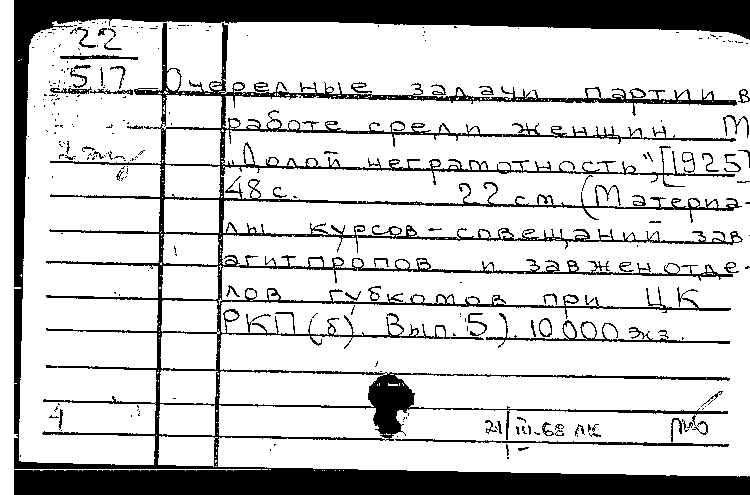 22
517
Очередные задачи партии в
работе среди женщин. М
2 экз
„Долой неграмотность", [1925]
48 с. 22 см. (Материа-
лы курсов-совещаний зав-
агитпропов и завженотде-
лов губкомов при ЦК
РКП(б). Вып. 5). 10000 экз.
4
21/III-68 ЛК